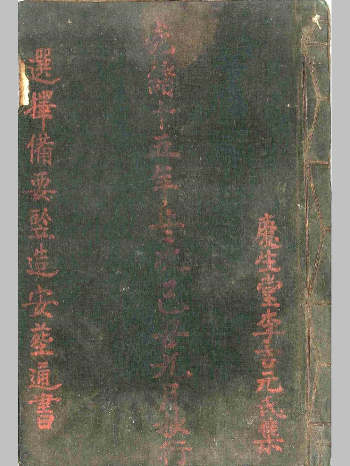 生堂李吉元氏集
光緒十五年歲次己丑九月行
選擇備要竪造安葬通書